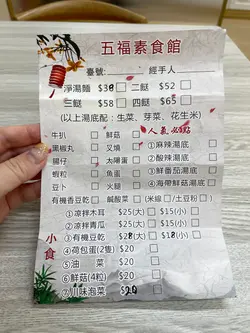 五福素食館
臺號: 經手人
淨湯麵 $38 □ 二餸 $52 □
三餸 $58 □ 四餸 $65 □
(以上湯底配：生菜、芽菜、花生米)
牛扒 □ 鮮菇 □ 人氣必點
黑椒丸 □ 叉燒 □ ①麻辣湯底 □
腸仔 □ 太陽蛋 □ ②酸辣湯底 □
蝦粒 □ 魚蛋 □ ③鮮番茄湯底 □
豆卜 □ 火腿 □ ④海帶鮮菇湯底 □
有機香杏豆乾 □ 鹹酸菜 □ (米線□/土豆粉□)
小食
①涼拌木耳 $25(大) □ $15(小) □
②涼拌青瓜 $25(大) □ $15(小) □
③有機豆乾 $28(大) □ $18(小) □
④荷包蛋(2隻) $20 □
⑤油菜 $20 □
⑥鮮菇(4粒) $20 □
⑦川味泡菜 $20 □